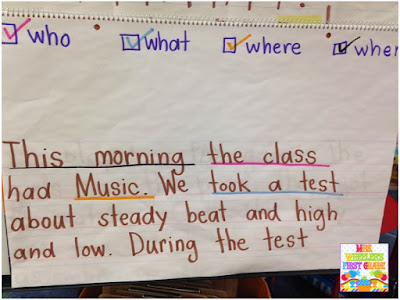 who what where when
This morning the class
had Music. We took a test
about steady beat and high
and low. During the test
MRS.
WHEELER'S
FIRST GRADE